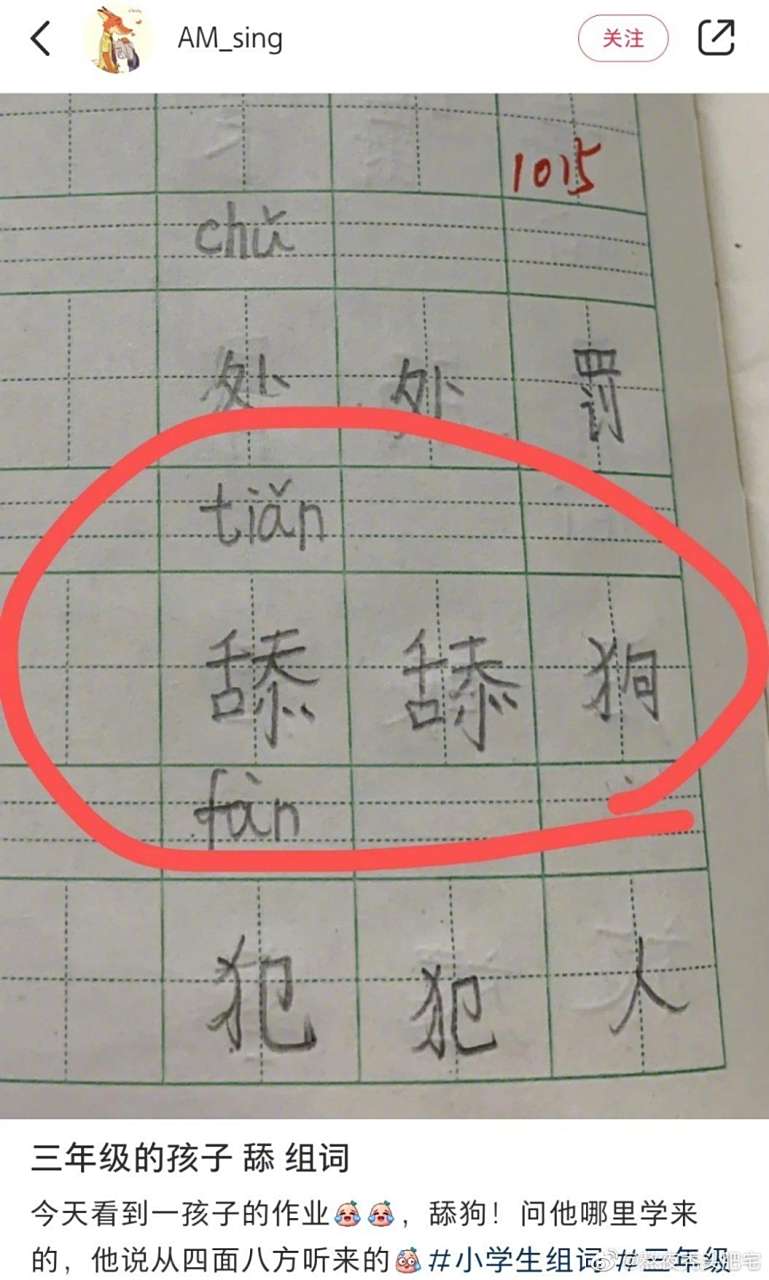 AM_sing
关注
1015
chǔ
处 处 罚
tiǎn
舔 舔 狗
fàn
犯 犯 人
三年级的孩子 舔 组词
今天看到一孩子的作业，舔狗！问他哪里学来
的，他说从四面八方听来的#小学生组词 #三年级